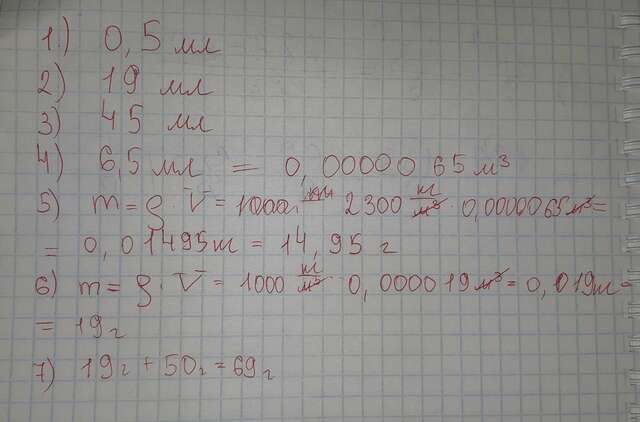 1.) 0,5 мл
2) 19 мл
3) 45 мл
4) 6,5 мл = 0,0000065 м³
5) m = ρ · V = 1000 2300 кг/м³ · 0,0000065 м³ =
= 0,01495 кг = 14,95 г
6) m = ρ · V = 1000 кг/м³ · 0,000019 м³ = 0,019 кг =
= 19 г
7) 19 г + 50 г = 69 г